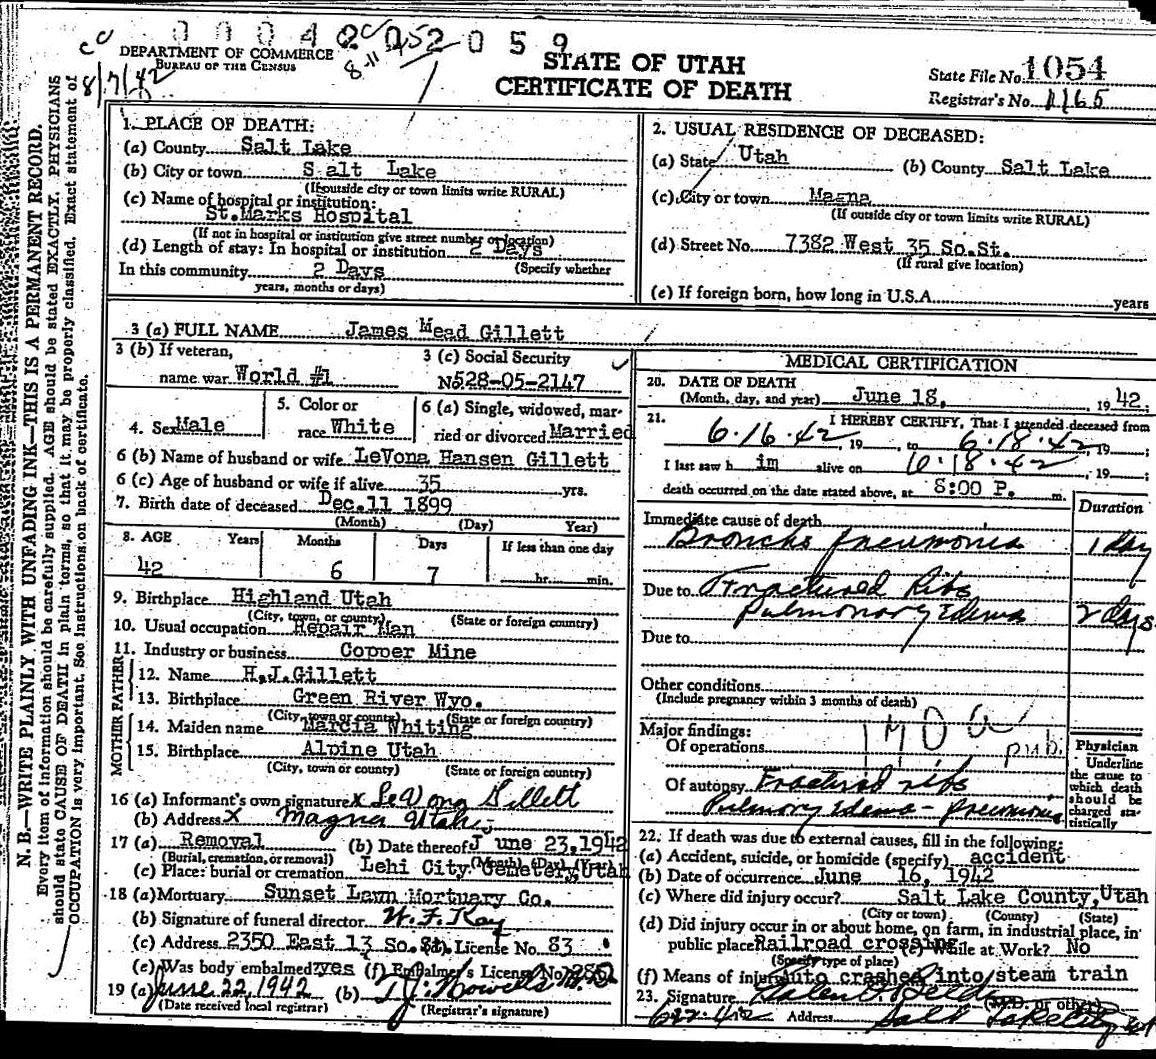 0 0 0 4 2 0 5 9
8/7/42
8-11
DEPARTMENT OF COMMERCE
BUREAU OF THE CENSUS
STATE OF UTAH
CERTIFICATE OF DEATH
State File No. 1054
Registrar's No. 1165
N. B.—WRITE PLAINLY WITH UNFADING INK—THIS IS A PERMANENT RECORD.
Every item of information should be carefully supplied. AGE should be stated EXACTLY. PHYSICIANS
should state CAUSE OF DEATH in plain terms, so that it may be properly classified. Exact statement of
OCCUPATION is very important. See instructions on back of certificate.
1. PLACE OF DEATH:
(a) County Salt Lake
(b) City or town Salt Lake
(If outside city or town limits write RURAL)
(c) Name of hospital or institution:
St.Marks Hospital
(If not in hospital or institution give street number or location)
(d) Length of stay: In hospital or institution 2 Days
In this community 2 Days (Specify whether
years, months or days)
2. USUAL RESIDENCE OF DECEASED:
(a) State Utah (b) County Salt Lake
(c) City or town Magna
(If outside city or town limits write RURAL)
(d) Street No. 7382 West 35 So.St.
(If rural give location)
(e) If foreign born, how long in U.S.A. years
3 (a) FULL NAME James Mead Gillett
3 (b) If veteran,
name war World #1
3 (c) Social Security
No 528-05-2147
4. Sex Male
5. Color or
race White
6 (a) Single, widowed, mar-
ried or divorced Married
6 (b) Name of husband or wife LeVona Hansen Gillett
6 (c) Age of husband or wife if alive 35 yrs.
7. Birth date of deceased Dec.11 1899
(Month) (Day) Year)
8. AGE Years Months Days If less than one day
42 6 7 hr. min.
9. Birthplace Highland Utah
(City, town, or county) (State or foreign country)
10. Usual occupation Repair Man
11. Industry or business Copper Mine
FATHER
12. Name H.J.Gillett
13. Birthplace Green River Wyo.
(City, town or county) (State or foreign country)
MOTHER
14. Maiden name Marcia Whiting
15. Birthplace Alpine Utah
(City, town or county) (State or foreign country)
16 (a) Informant's own signature x LeVona Gillett
(b) Address x Magna Utah
17 (a) Removal (b) Date thereof June 23,1942
(Burial, cremation, or removal) (Month) (Day) (Year)
(c) Place: burial or cremation Lehi City Cemetery,Utah
18 (a) Mortuary Sunset Lawn Mortuary Co.
(b) Signature of funeral director W. F. Kay
(c) Address 2350 East 13 So.St. (d) License No. 83
(e) Was body embalmed? yes (f) Embalmer's License No.
19 (a) June 22, 1942 (b) T. J. Howells
(Date received local registrar) (Registrar's signature)
MEDICAL CERTIFICATION
20. DATE OF DEATH
(Month, day, and year) June 18, 19 42.
21. I HEREBY CERTIFY, That I attended deceased from
6-16-42, 19 to 6-18-42, 19 ;
I last saw h im alive on 6-18-42, 19 ;
death occurred on the date stated above, at 8:00 P. m.
Duration
Immediate cause of death
Broncho pneumonia 1 day
Due to Fractured Ribs
Pulmonary Edema 2 days
Due to
Other conditions
(Include pregnancy within 3 months of death)
Major findings:
Of operations
Of autopsy Fractured ribs
Pulmonary Edema - pneumonia
Physician
Underline
the cause to
which death
should be
charged sta-
tistically
22. If death was due to external causes, fill in the following:
(a) Accident, suicide, or homicide (specify) accident
(b) Date of occurrence June 16, 1942
(c) Where did injury occur? Salt Lake County,Utah
(City or town) (County) (State)
(d) Did injury occur in or about home, on farm, in industrial place, in
public place Railroad crossing (e) While at Work? No
(Specify type of place)
(f) Means of injury Auto crashed into steam train
23. Signature (M.D. or other)
6-22-42 Address Salt Lake City Ut